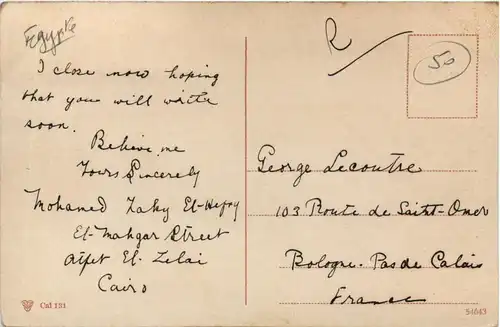 Egypte
I close now hoping
that you will write
soon.
Believe me
Yours Sincerely
Mohamed Zaky El-Hefny
El-Mahgar Street
Atfet El-Zelai
Cairo
Cal 131
R
50
George Lecoutre
103 Route de Saint-Omer
Bologne. Pas de Calais
France
51043